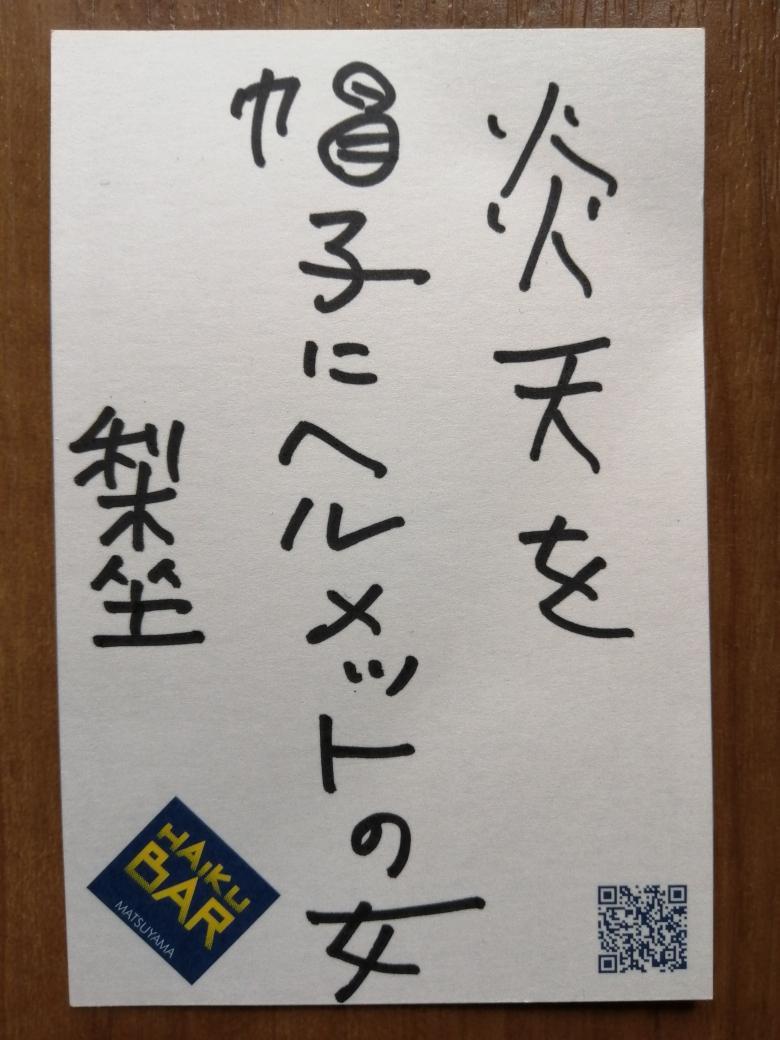 炎天を
帽子にヘルメットの女
梨坐
HAIKU
BAR
MATSUYAMA